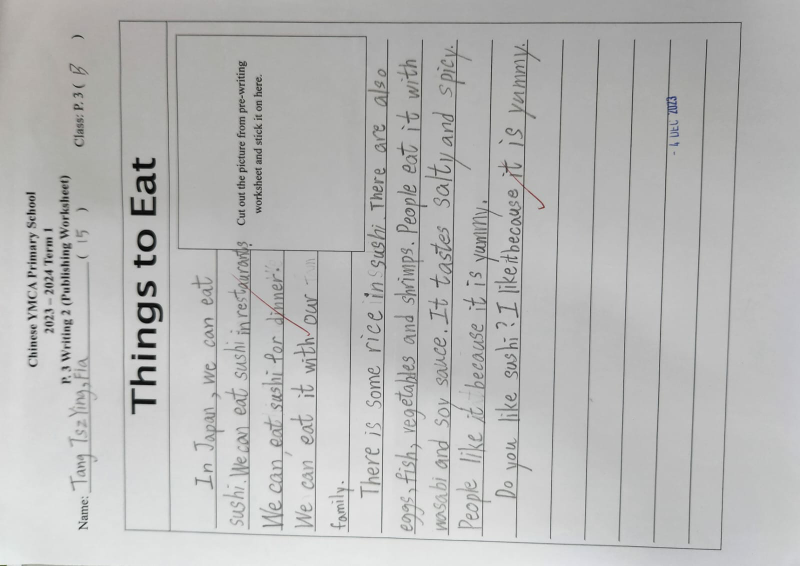 Chinese YMCA Primary School
2023 – 2024 Term 1
P.3 Writing 2 (Publishing Worksheet)
Name: Tang Tsz Ying, Fia ( 15 ) Class: P. 3 ( B )
Things to Eat
Cut out the picture from pre-writing
worksheet and stick it on here.
In Japan, we can eat
sushi. We can eat sushi in restaurants
We can eat sushi for dinner.
We can eat it with our
family.
There is some rice in sushi. There are also
eggs, fish, vegetables and shrimps. People eat it with
wasabi and soy sauce. It tastes salty and spicy.
People like it because it is yummy.
Do you like sushi? I like it because it is yummy.
- 4 DEC 2023